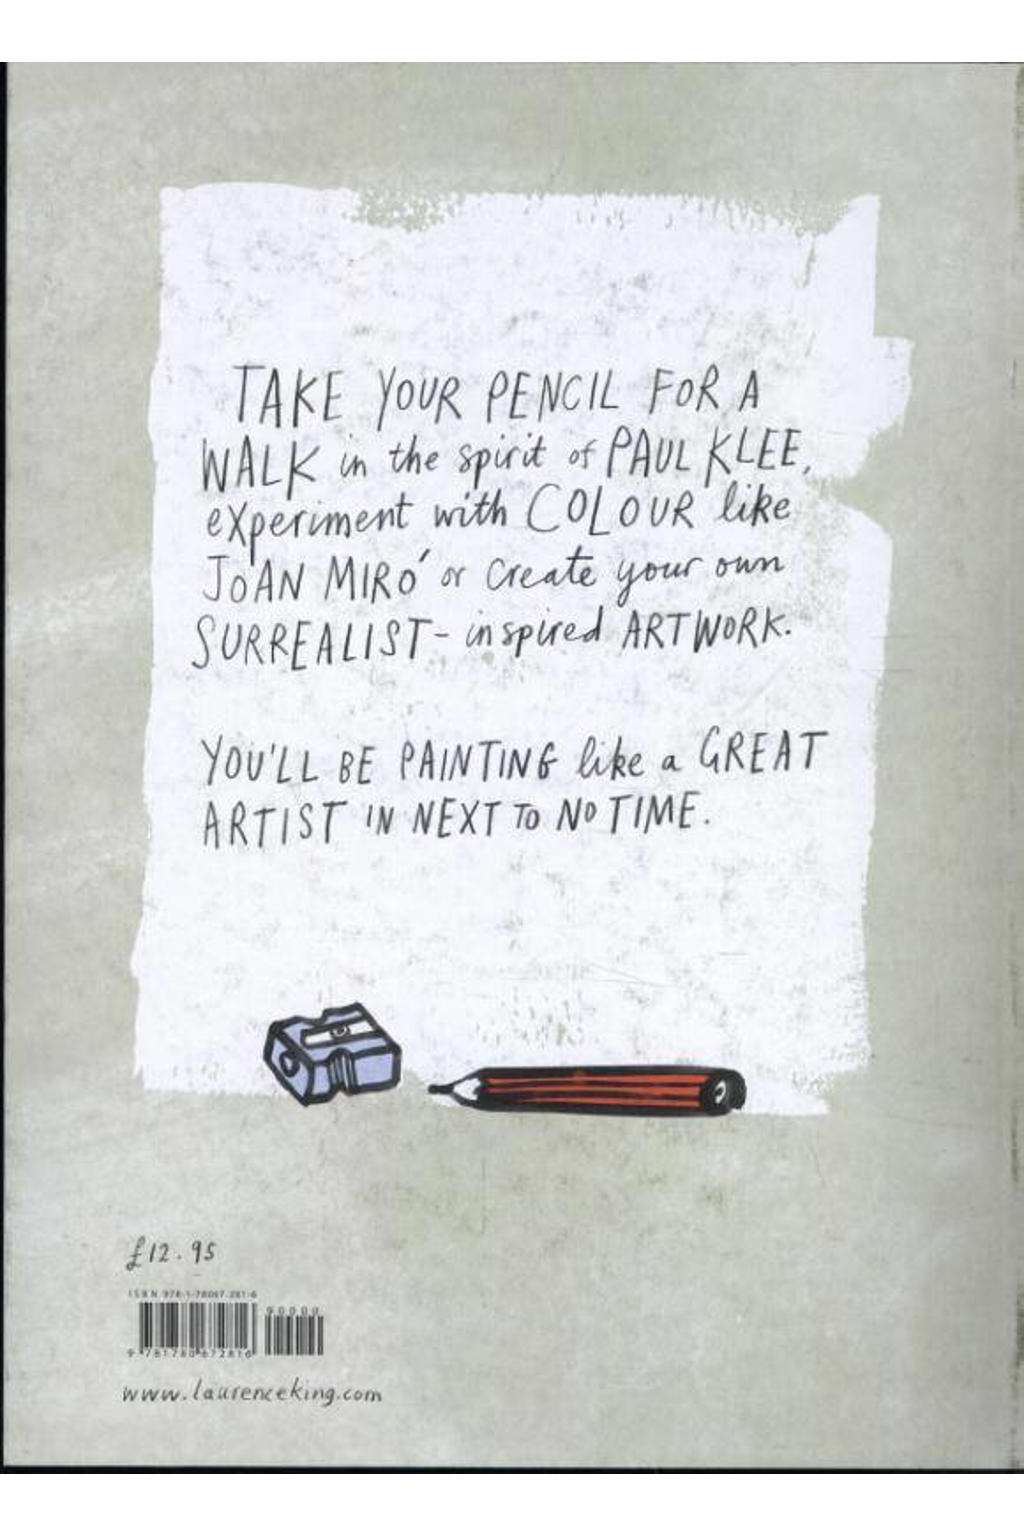 TAKE YOUR PENCIL FOR A
WALK in the spirit of PAUL KLEE,
experiment with COLOUR like
JOAN MIRÓ or create your own
SURREALIST- inspired ARTWORK.
YOU'LL BE PAINTING like a GREAT
ARTIST IN NEXT TO NO TIME.
£12.95
ISBN 978-1-78067-281-6
90000
9 781780 672816
www.laurenceking.com